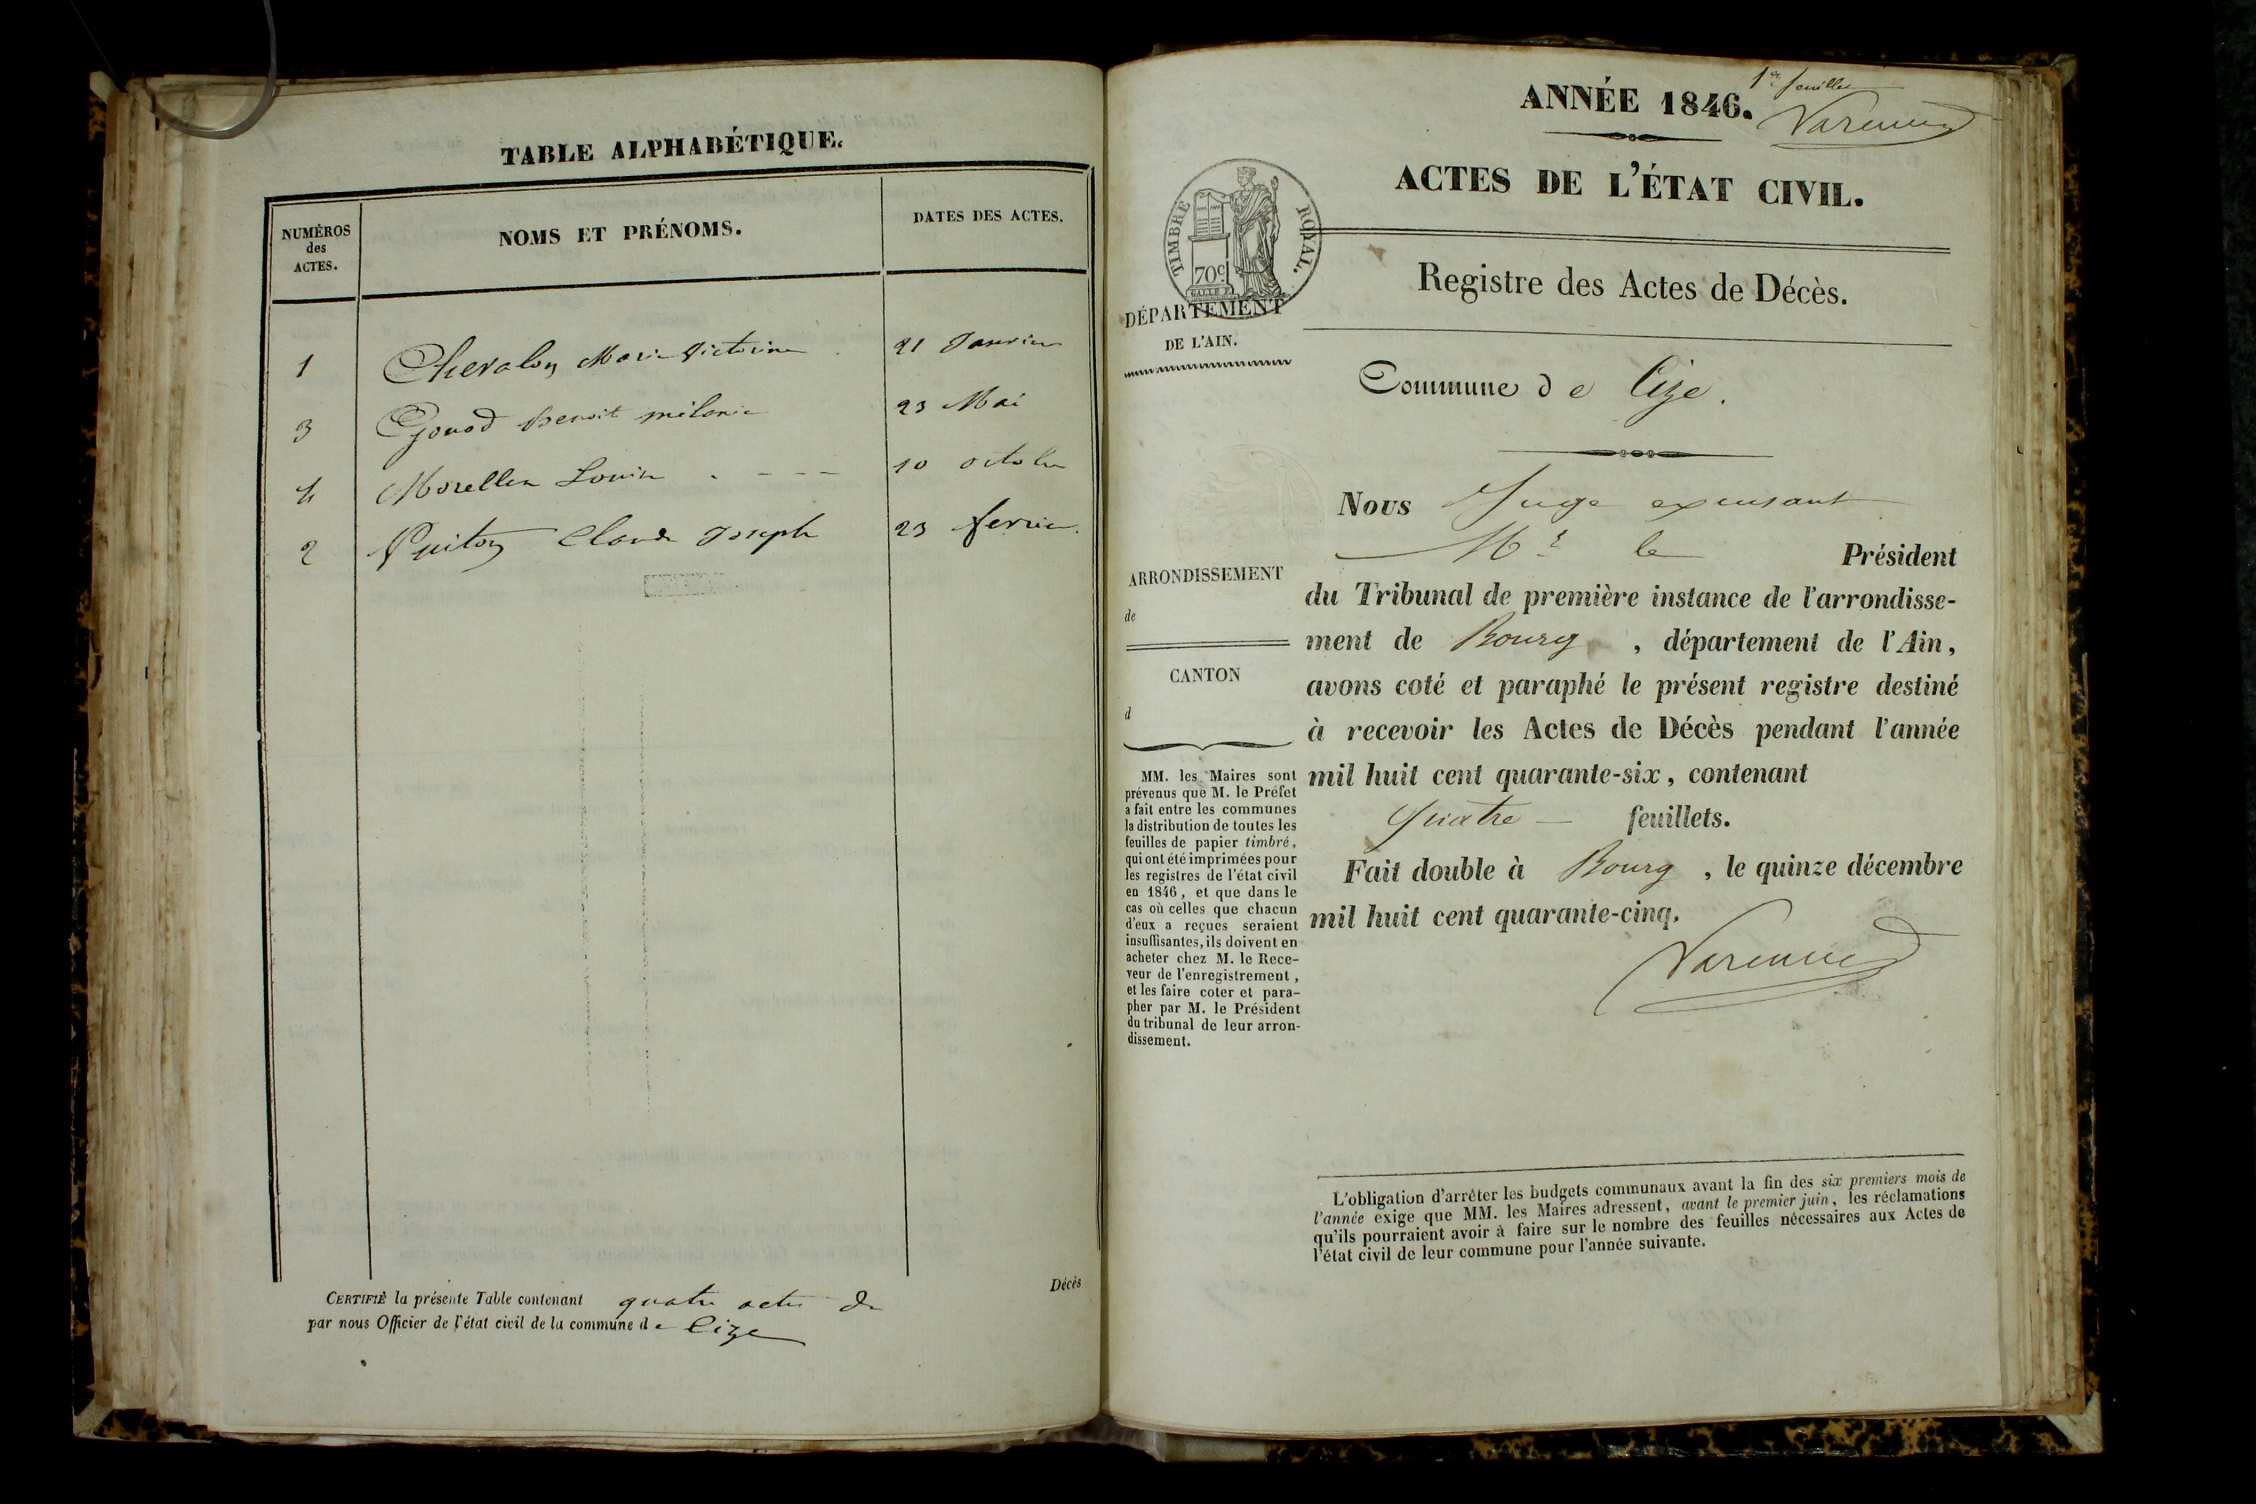 TABLE ALPHABÉTIQUE.
NUMÉROS
des
ACTES.
NOMS ET PRÉNOMS.
DATES DES ACTES.
1 Chevalon Marie Victorine 21 Janvier
3 Gonod Benoit mélanie 23 Mai
4 Morellen Louise - - - 10 octobre
2 Claude Joseph 23 fevrier.
CERTIFIÉ la présente Table contenant quatre actes de Décès
par nous Officier de l'état civil de la commune de Cize
1er feuillet
ANNÉE 1846.
ACTES DE L'ÉTAT CIVIL.
TIMBRE ROYAL.
70c
DÉPARTEMENT
DE L'AIN.
Registre des Actes de Décès.
Commune de Cize.
Nous Juge excusant
Mr. le Président
du Tribunal de première instance de l'arrondisse-
ment de Bourg, département de l'Ain,
avons coté et paraphé le présent registre destiné
à recevoir les Actes de Décès pendant l'année
mil huit cent quarante-six, contenant
quatre — feuillets.
Fait double à Bourg, le quinze décembre
mil huit cent quarante-cinq.
ARRONDISSEMENT
de
CANTON
d
MM. les Maires sont
prévenus que M. le Préfet
a fait entre les communes
la distribution de toutes les
feuilles de papier timbré,
qui ont été imprimées pour
les registres de l'état civil
en 1846, et que dans le
cas où celles que chacun
d'eux a reçues seraient
insuffisantes, ils doivent en
acheter chez M. le Rece-
veur de l'enregistrement,
et les faire coter et para-
pher par M. le Président
du tribunal de leur arron-
dissement.
L'obligation d'arrêter les budgets communaux avant la fin des six premiers mois de
l'année exige que MM. les Maires adressent, avant le premier juin, les réclamations
qu'ils pourraient avoir à faire sur le nombre des feuilles nécessaires aux Actes de
l'état civil de leur commune pour l'année suivante.